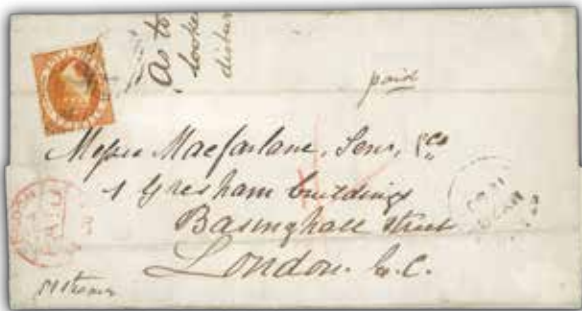 As to
looke
distur
paid
Messrs Macfarlane, Sons, & Co
1 Gresham buildings
Basinghall Street
London. E.C.
PAID